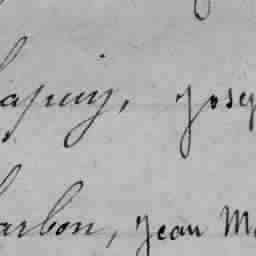 hapuy, Josep
harbon, Jean M